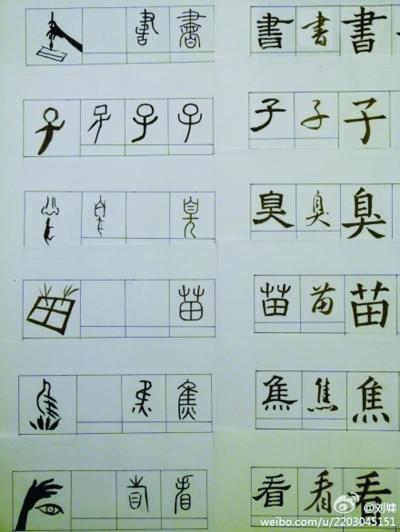 書 書 書 書 書
子 子 子 子 子 子
臭 臭 臭 臭
苗 苗 苗 苗
焦 焦 焦 焦 焦
看 看 看 看 看
@刘墉
weibo.com/u/2203045151